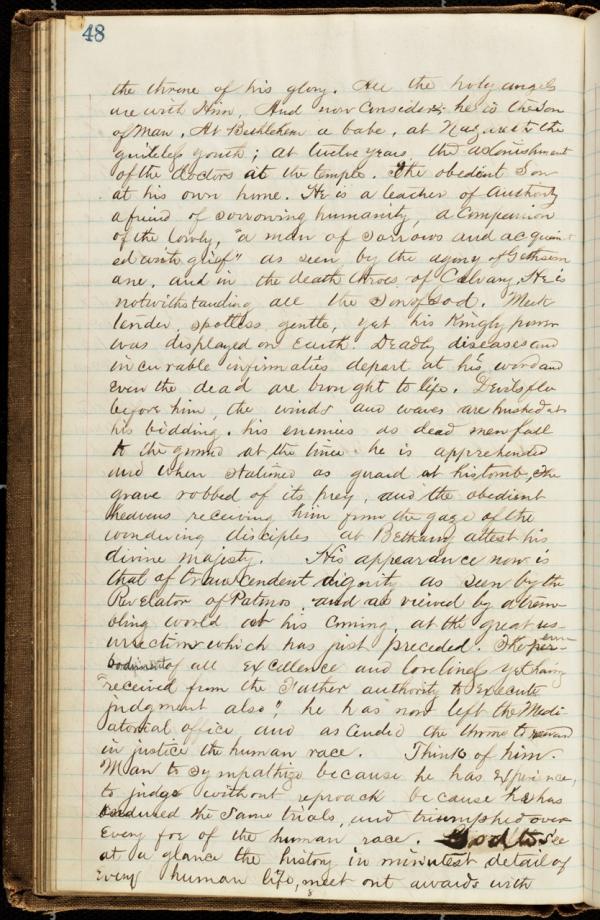 48
the throne of his glory. All the holy angels
are with Him. And now Consider; he is the Son
of Man. At Bethlehem a babe, at Nazareth the
guileless youth; at twelve years, the astonishment
of the doctors at the temple. The obedient Son
at his own home. He is a teacher of Authority
a friend of sorrowing humanity, a Companion
of the lowly, "a man of sorrows and acquaint
ed with grief" as seen by the agony of Gethsem
ane, and in the death throes of Calvary, He is
notwithstanding all the Son of God. Meek
tender, spotless, gentle, yet his Kingly power
was displayed on Earth. Deadly diseases and
incurable infirmaties depart at his word and
Even the dead are brought to life. Devils flee
before him, the winds and waves are hushed at
his bidding. his enemies as dead men fall
to the ground at the time he is apprehended
and when stationed as guard at his tomb, the
grave robbed of its prey, and the obedient
heavens receiving him from the gaze of the
wondering disciples at Bethany attest his
divine majesty. His appearance now is
that of trancendent dignity as seen by the
Revelator of Patmos, and as viewed by a trem-
bling world at his coming, at the great res-
urrection which has just preceded. The per em
bodiment of all Excellence and loveliness yet having
"received from the Father authority to Execute
judgment also", he has now left the Medi
atorial office and ascended the throne to reward
in justice the human race. Think of him.
Man to sympathize because he has Experience,
to judge without reproach because he has
endured the same trials, and triumphed over
Every foe of the human race. God to see
at a glance the history in minutest detail of
Every human life, meet out awards with